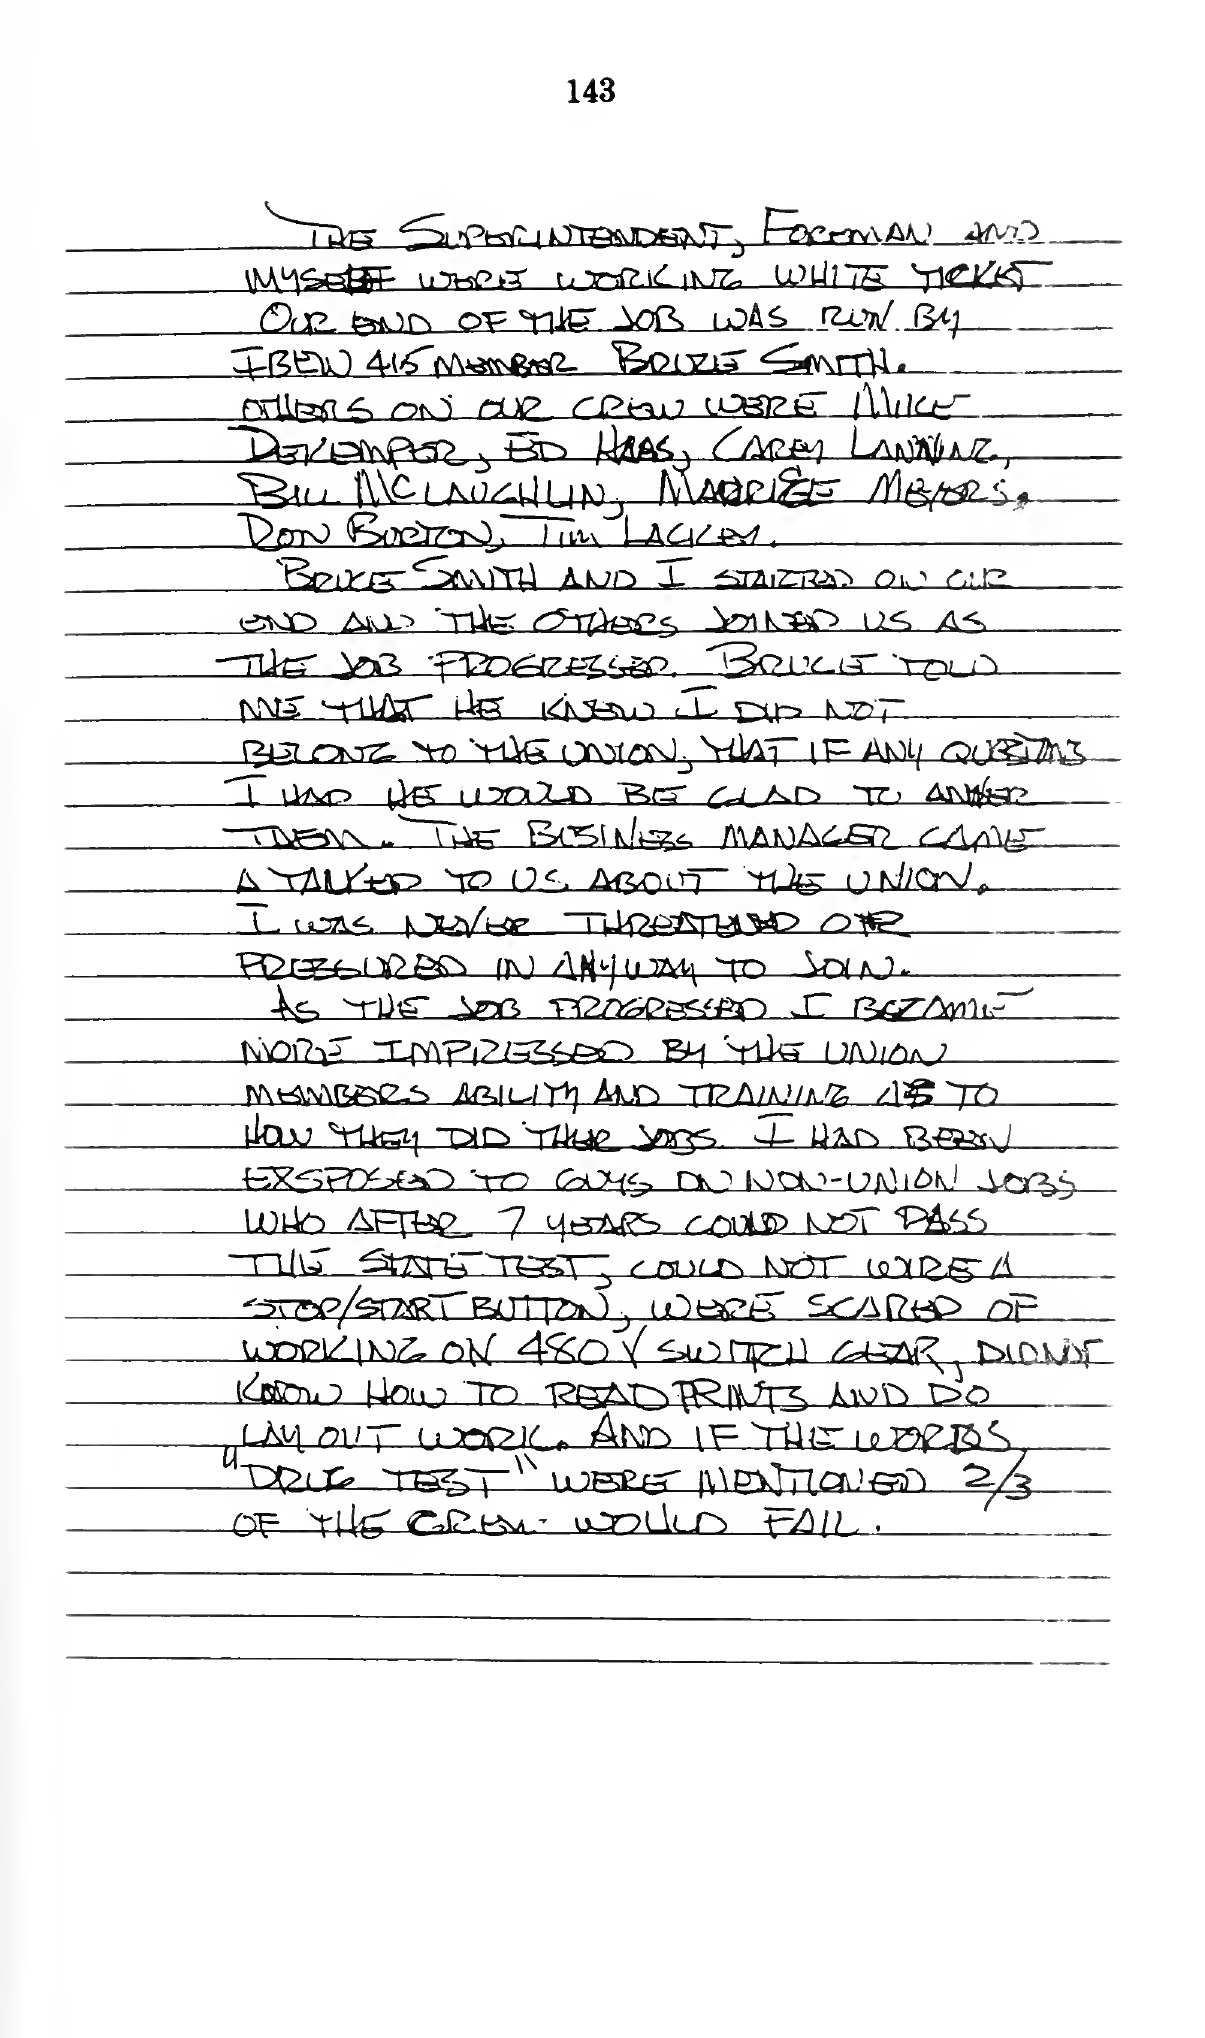 143
THE SUPERINTENDENT, FOREMAN AND
MYSELF WERE WORKING WHITE TICKET
OUR END OF THE JOB WAS RUN BY
IBEW 415 MEMBER BRUCE SMITH.
OTHERS ON OUR CREW WERE MIKE
DEKEMPER, ED HAAS, CAREY LANNING,
BILL MCLAUGHLIN, MAURICE MEYERS,
DON BURTON, TIM LACKEY.
BRUCE SMITH AND I STARTED ON OUR
END AND THE OTHERS JOINED US AS
THE JOB PROGRESSED. BRUCE TOLD
ME THAT HE KNEW I DID NOT
BELONG TO THE UNION, THAT IF ANY QUESTIONS
I HAD HE WOULD BE GLAD TO ANSWER
THEM. THE BUSINESS MANAGER CAME
A TALKED TO US ABOUT THE UNION.
I WAS NEVER THREATENED OR
PRESSURED IN ANYWAY TO JOIN.
AS THE JOB PROGRESSED I BECAME
MORE IMPRESSED BY THE UNION
MEMBERS ABILITY AND TRAINING AS TO
HOW THEY DID THEIR JOBS. I HAD BEEN
EXSPOSED TO GUYS ON NON-UNION JOBS
WHO AFTER 7 YEARS COULD NOT PASS
THE STATE TEST, COULD NOT WIRE A
STOP/START BUTTON, WERE SCARED OF
WORKING ON 480 V SWITCH GEAR, DID NOT
KNOW HOW TO READ PRINTS AND DO
LAY OUT WORK. AND IF THE WORDS
"DRUG TEST" WERE MENTIONED 2/3
OF THE CREW WOULD FAIL.